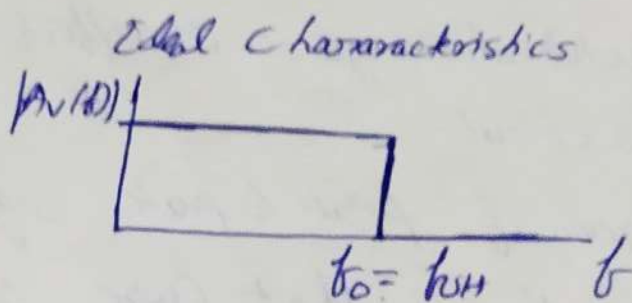 Ideal Chararacteristics
|Av(f)|
f0 = fUH f